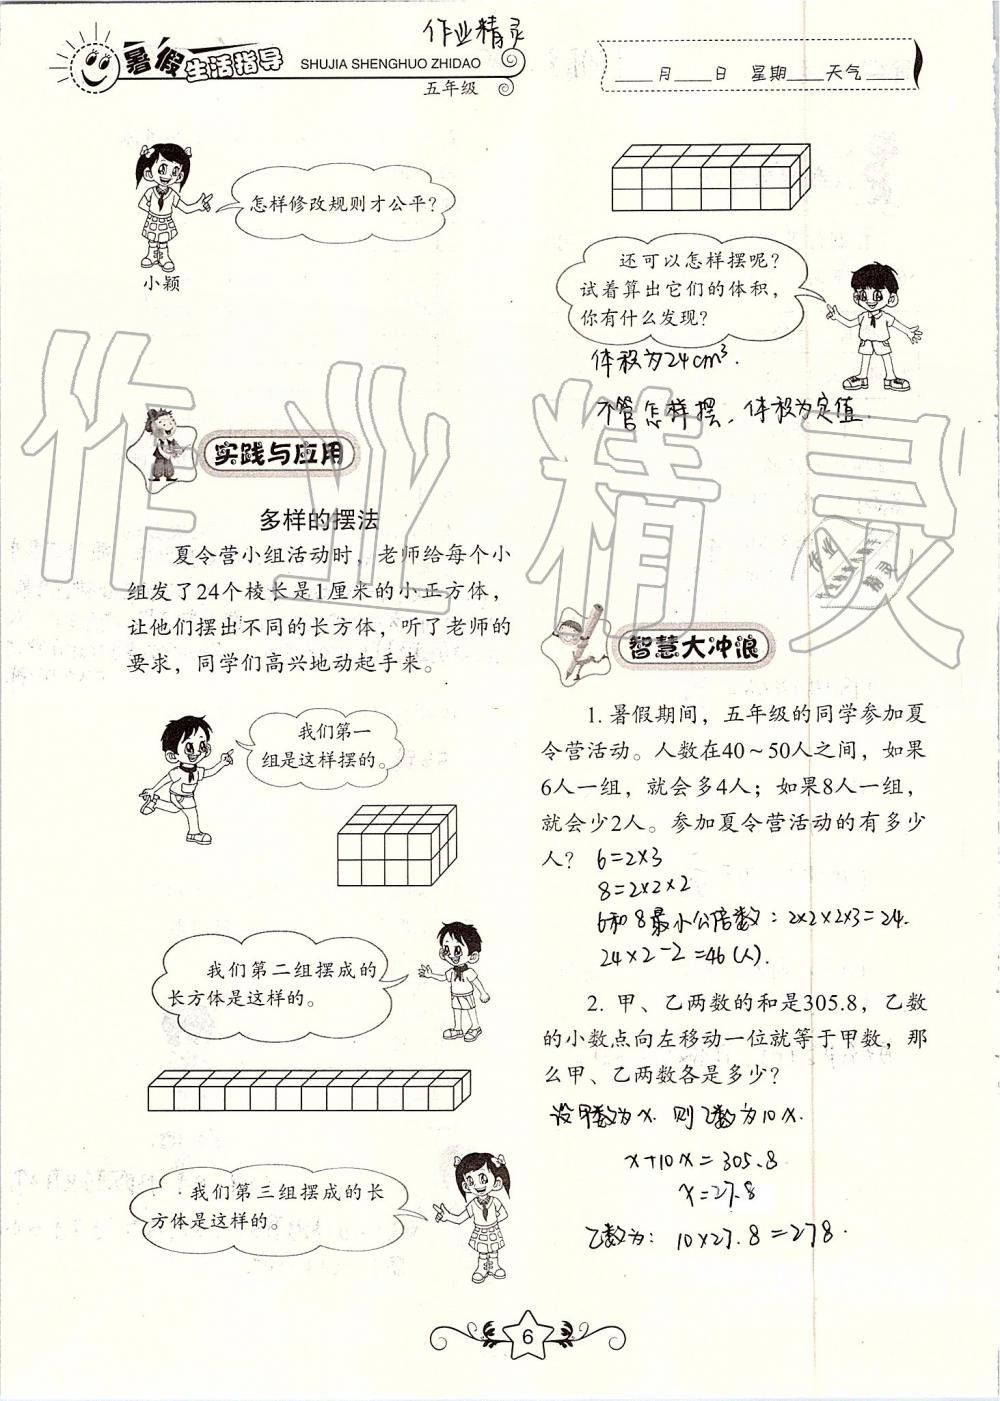 作业精灵
暑假生活指导
SHUJIA SHENGHUO ZHIDAO
五年级
____月____日 星期____天气____
怎样修改规则才公平？
小颖
实践与应用
多样的摆法
夏令营小组活动时，老师给每个小
组发了24个棱长是1厘米的小正方体，
让他们摆出不同的长方体，听了老师的
要求，同学们高兴地动起手来。
我们第一
组是这样摆的。
我们第二组摆成的
长方体是这样的。
我们第三组摆成的长
方体是这样的。
还可以怎样摆呢？
试着算出它们的体积，
你有什么发现？
体积为24cm³.
不管怎样摆，体积为定值.
智慧大冲浪
1. 暑假期间，五年级的同学参加夏
令营活动。人数在40～50人之间，如果
6人一组，就会多4人；如果8人一组，
就会少2人。参加夏令营活动的有多少
人？ 6=2×3
8=2×2×2
6和8最小公倍数：2×2×2×3=24.
24×2-2=46(人).
2. 甲、乙两数的和是305.8，乙数
的小数点向左移动一位就等于甲数，那
么甲、乙两数各是多少？
设甲数为x. 则乙数为10x.
x+10x=305.8
x=27.8
乙数为：10×27.8=278.
6
作业精灵
作业
精灵